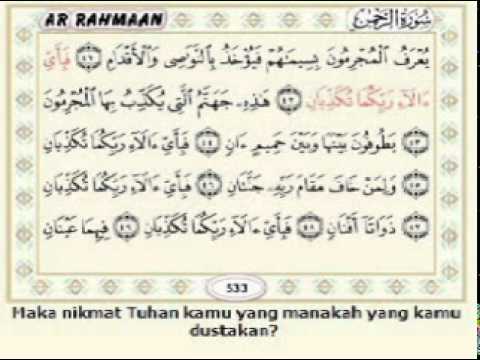 AR RAHMAAN سُورَةُ الرَّحْمٰن
يُعْرَفُ ٱلْمُجْرِمُونَ بِسِيمَٰهُمْ فَيُؤْخَذُ بِٱلنَّوَٰصِى وَٱلْأَقْدَامِ ٤١ فَبِأَىِّ
ءَالَآءِ رَبِّكُمَا تُكَذِّبَانِ ٤٢ هَٰذِهِۦ جَهَنَّمُ ٱلَّتِى يُكَذِّبُ بِهَا ٱلْمُجْرِمُونَ
٤٣ يَطُوفُونَ بَيْنَهَا وَبَيْنَ حَمِيمٍ ءَانٍ ٤٤ فَبِأَىِّ ءَالَآءِ رَبِّكُمَا تُكَذِّبَانِ
٤٥ وَلِمَنْ خَافَ مَقَامَ رَبِّهِۦ جَنَّتَانِ ٤٦ فَبِأَىِّ ءَالَآءِ رَبِّكُمَا تُكَذِّبَانِ
٤٧ ذَوَاتَآ أَفْنَانٍ ٤٨ فَبِأَىِّ ءَالَآءِ رَبِّكُمَا تُكَذِّبَانِ ٤٩ فِيهِمَا عَيْنَانِ
533
Maka nikmat Tuhan kamu yang manakah yang kamu
dustakan?